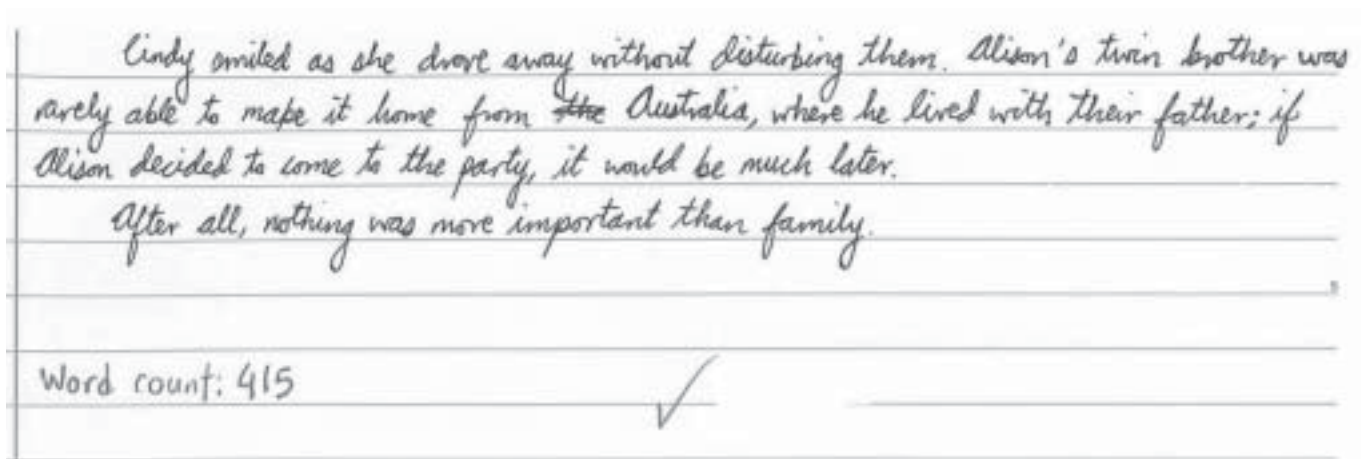 Cindy smiled as she drove away without disturbing them. Alison's twin brother was
rarely able to make it home from the Australia, where he lived with their father; if
Alison decided to come to the party, it would be much later.
After all, nothing was more important than family.
Word count: 415